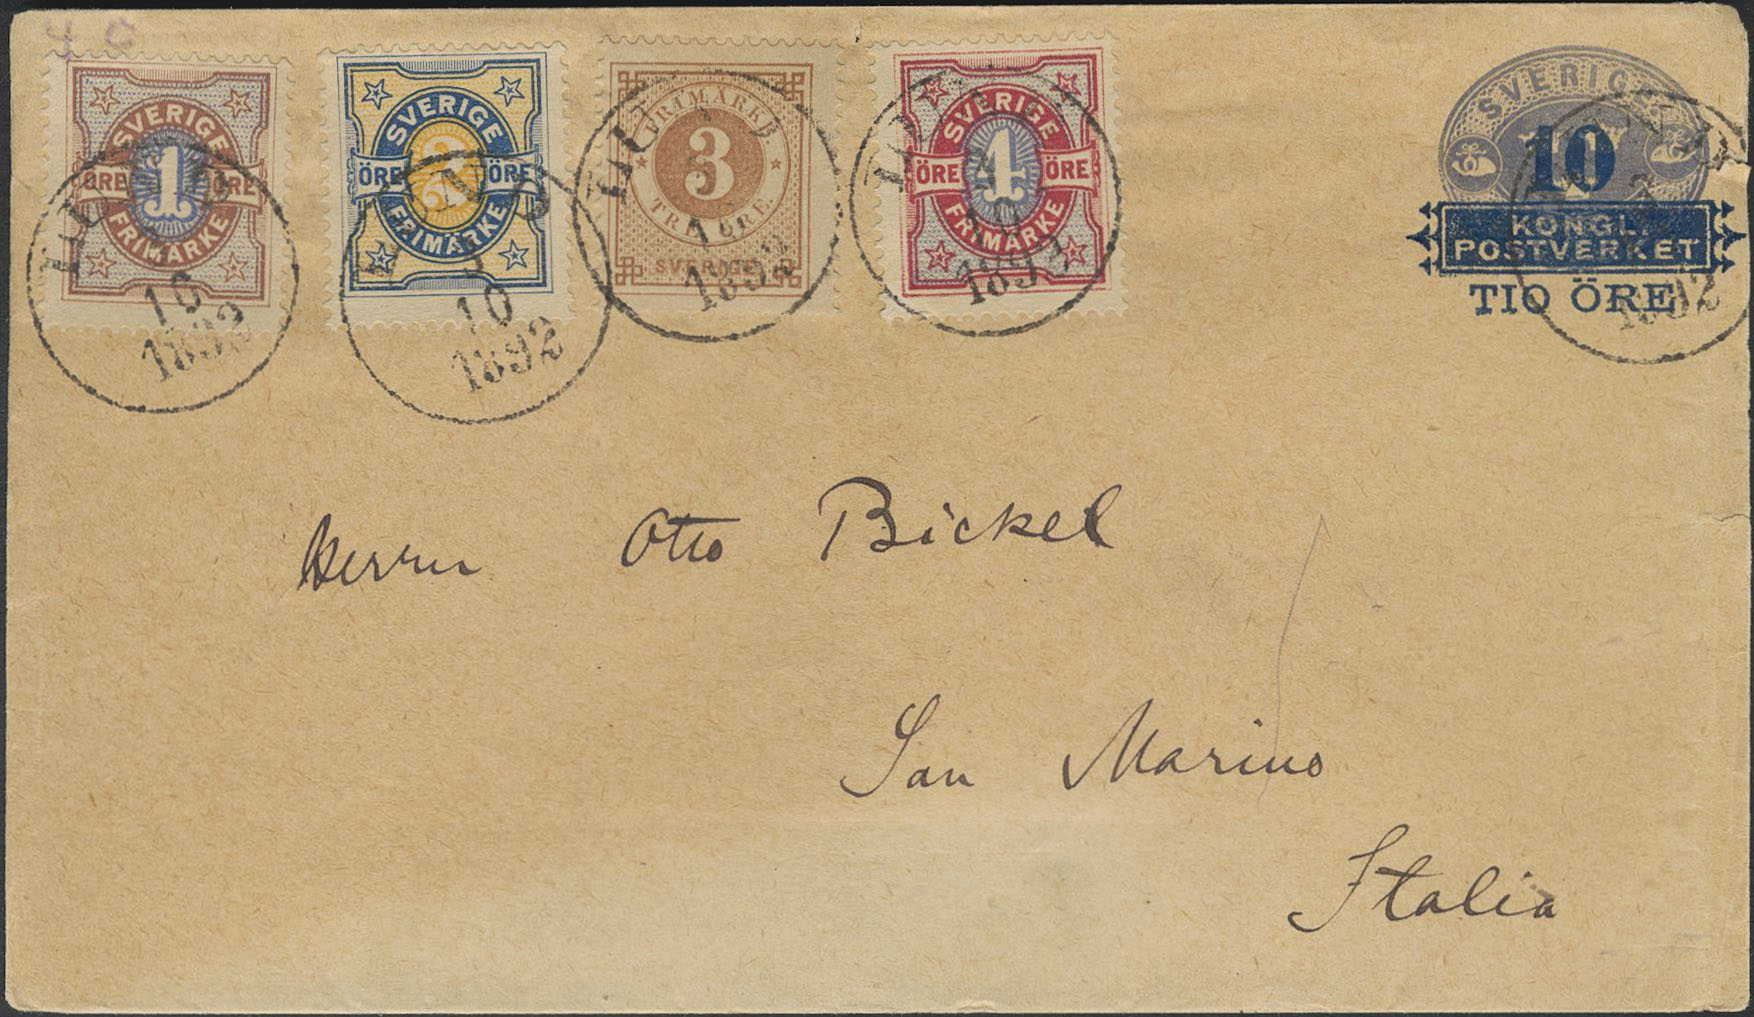 40
SVERIGE
ÖRE 1 ÖRE
FRIMÄRKE
SVERIGE
ÖRE 2 ÖRE
FRIMÄRKE
FRIMÄRKE
3
TRE ÖRE
SVERIGE
SVERIGE
ÖRE 4 ÖRE
FRIMÄRKE
SVERIGE
10
KONGL.
POSTVERKET
TIO ÖRE
LUND
10
1892
LUND
10
1892
LUND
1892
LUND
10
1892
LUND
1892
Herrn Otto Bickel
San Marino
Italia